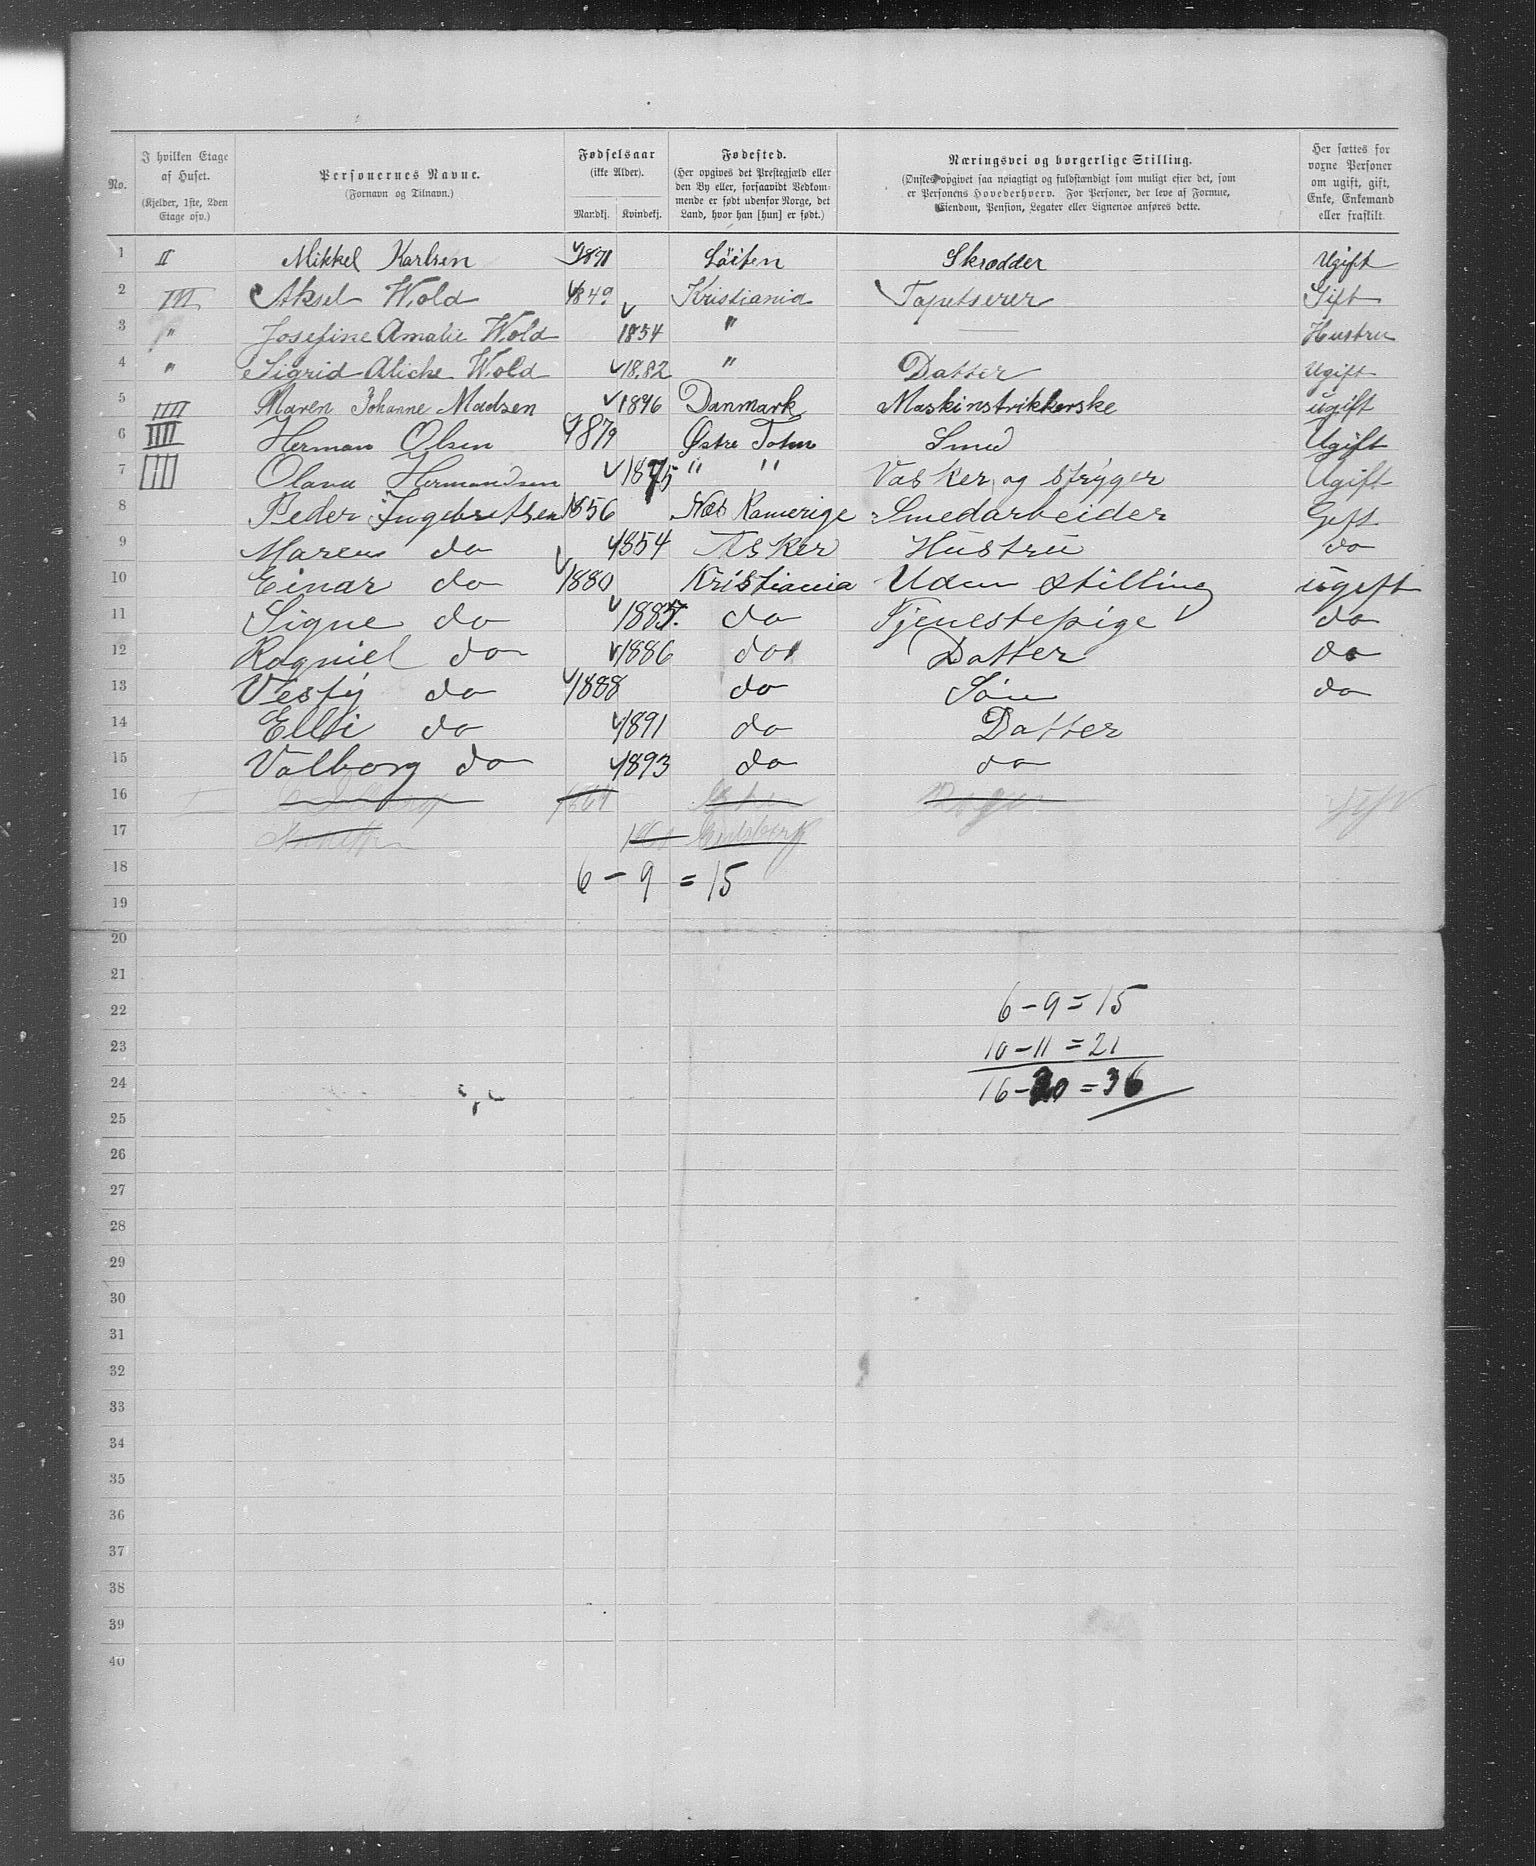 No. I hvilken Etage af Huset. (Kjelder, 1ste, 2den Etage osv.) Personernes Navne. (Fornavn og Tilnavn.) Fødselsaar (ikke Alder). Mandkj. Kvindekj. Fødested. (Her opgives det Prestegjæld eller den By eller, forsaavidt Vedkommende er født udenfor Norge, det Land, hvor han [hun] er født.) Næringsvei og borgerlige Stilling. (Ønskes opgivet saa nøiagtigt og fuldstændigt som muligt efter det, som er Personens Hovederhverv. For Personer, der leve af Formue, Eiendom, Pension, Legater eller Lignende anføres dette. Her sættes for voxne Personer om ugift, gift, Enke, Enkemand eller fraskilt.
1 II Mikkel Karlsen 1871 Löiten Skrædder Ugift
2 III Aksel Wold 1849 Kristiania Tapetserer Gift
3 " Josefine Amalie Wold 1854 " — Hustru
4 " Sigrid Aliche Wold 1882 " Datter Ugift
5 IIII Maren Johanne Madsen 1846 Danmark Maskinstrikkerske ugift
6 IIII Herman Olsen 1879 Østre Toten Smed Ugift
7 IIII Olava Hermandsen 1875 " " Vasker og stryger Ugift
8 Peder Ingebretsen 1856 Næs Romerige Smedarbeider Gift
9 Maren do 1854 Asker Hustru do
10 Einar do 1880 Kristiania Uden stilling ugift
11 Signe do 1885. do Tjenestepige do
12 Ragniel do 1886 do Datter do
13 Vesty do 1888 do Søn do
14 Elbi do 1891 do Datter
15 Valborg do 1893 do do
16 I
17
18 6 – 9 = 15
19
20
21
22 6 – 9 = 15
23 10 – 11 = 21
24 16 – 20 = 36
25
26
27
28
29
30
31
32
33
34
35
36
37
38
39
40